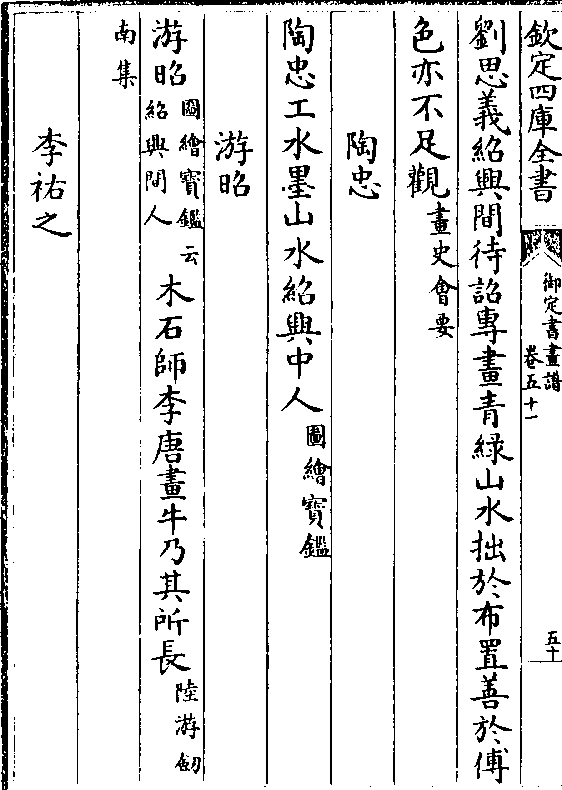 欽定四庫全書
御定書畫譜
卷五十一
五十
劉思義紹興間待詔專畫青緑山水拙於布置善於傅
色亦不足觀畫史會要
陶忠
陶忠工水墨山水紹興中人圖繪寶鑑
游昭
游昭圖繪寶鑑云紹興間人木石師李唐畫牛乃其所長陸游劒
南集
李祐之